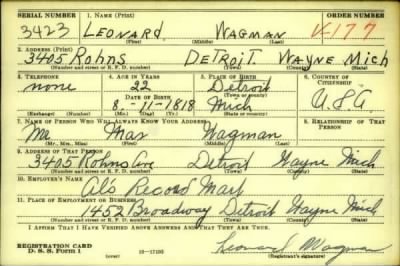 SERIAL NUMBER 1. NAME (Print) ORDER NUMBER
3423 LEONARD. WAGMAN V-177
(First) (Middle) (Last)
2. ADDRESS (Print)
3405 Rohns DETROIT. WAYNE MICH
(Number and street or R. F. D. number) (Town) (County) (State)
3. TELEPHONE 4. AGE IN YEARS 5. PLACE OF BIRTH 6. COUNTRY OF CITIZENSHIP
none 22 Detroit
DATE OF BIRTH (Town or county)
8.-11-1818 Mich U.S.A.
(Exchange) (Number) (Mo.) (Day) (Yr.) (State or country)
7. NAME OF PERSON WHO WILL ALWAYS KNOW YOUR ADDRESS 8. RELATIONSHIP OF THAT PERSON
Max Wagman
(Mr., Mrs., Miss) (First) (Middle) (Last)
9. ADDRESS OF THAT PERSON
3405 Rohns Ave Detroit Wayne Mich
(Number and street or R. F. D. number) (Town) (County) (State)
10. EMPLOYER'S NAME
Al's Record Mart
11. PLACE OF EMPLOYMENT OR BUSINESS
1452 Broadway Detroit Wayne Mich
(Number and street or R. F. D. number) (Town) (County) (State)
I AFFIRM THAT I HAVE VERIFIED ABOVE ANSWERS AND THAT THEY ARE TRUE.
REGISTRATION CARD
D. S. S. Form 1 (over) Leonard Wagman
(Registrant's signature)